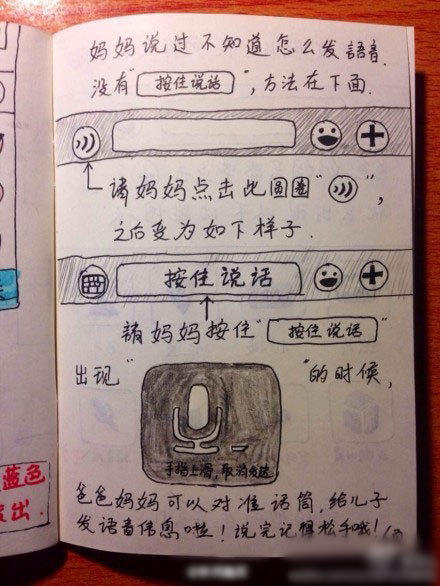 妈妈说过不知道怎么发語音.
没有"按住说话",方法在下面.
请妈妈点击此圆圈" ",
之后变为如下样子.
按住说话
請妈妈按住"按住说话"
出现" "的时候,
手指上滑,取消发送
爸爸妈妈可以对准话筒,给儿子
发语音信息啦!说完记得松手哦!
蓝色
发出.